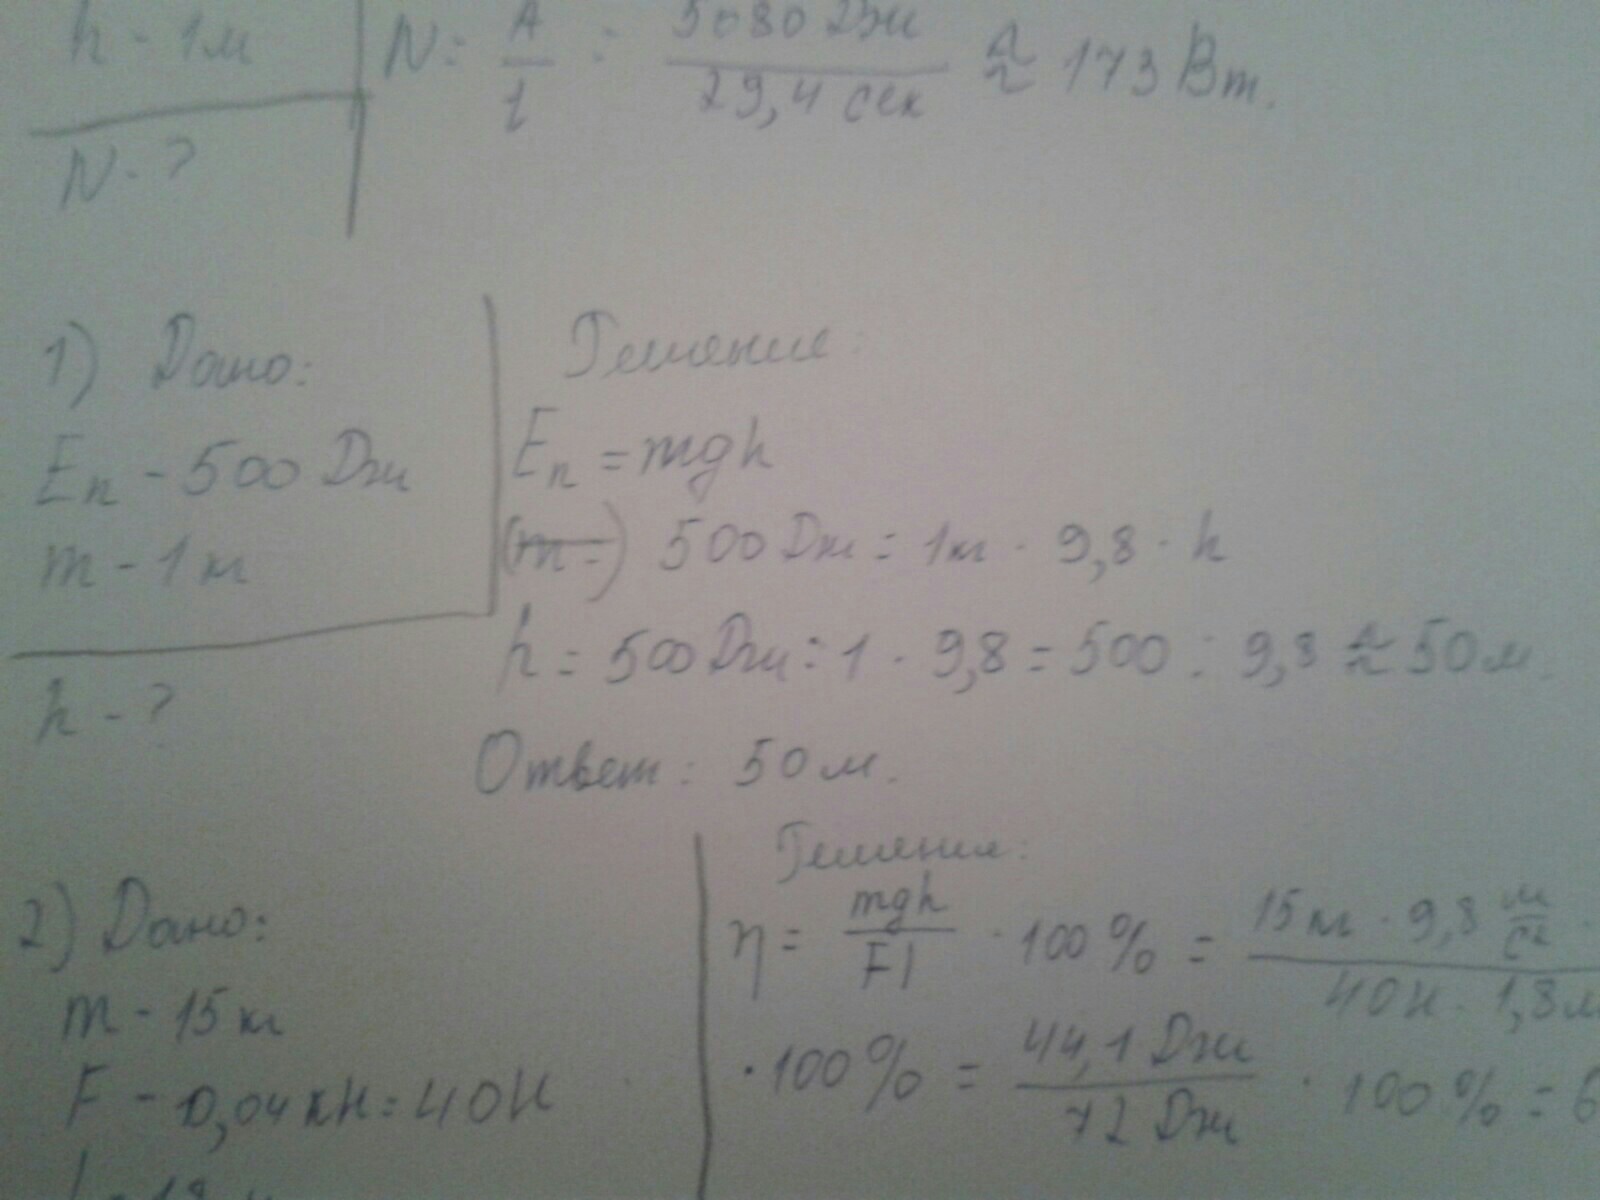 h - 1м
N = A/t = 5080 Дж / 29,4 сек ≈ 173 Вт.
N - ?
1) Дано:
Eп - 500 Дж
m - 1 кг
h - ?
Решение:
Eп = mgh
(m =) 500 Дж = 1кг · 9,8 · h
h = 500 Дж : 1 · 9,8 = 500 : 9,8 ≈ 50 м.
Ответ: 50 м.
2) Дано:
m - 15 кг
F - 0,04 кН = 40 Н
Решение:
η = mgh/Fl · 100 % = 15 кг · 9,8 м/с² · / 40 Н · 1,8 м
· 100 % = 44,1 Дж / 72 Дж · 100 % = 6